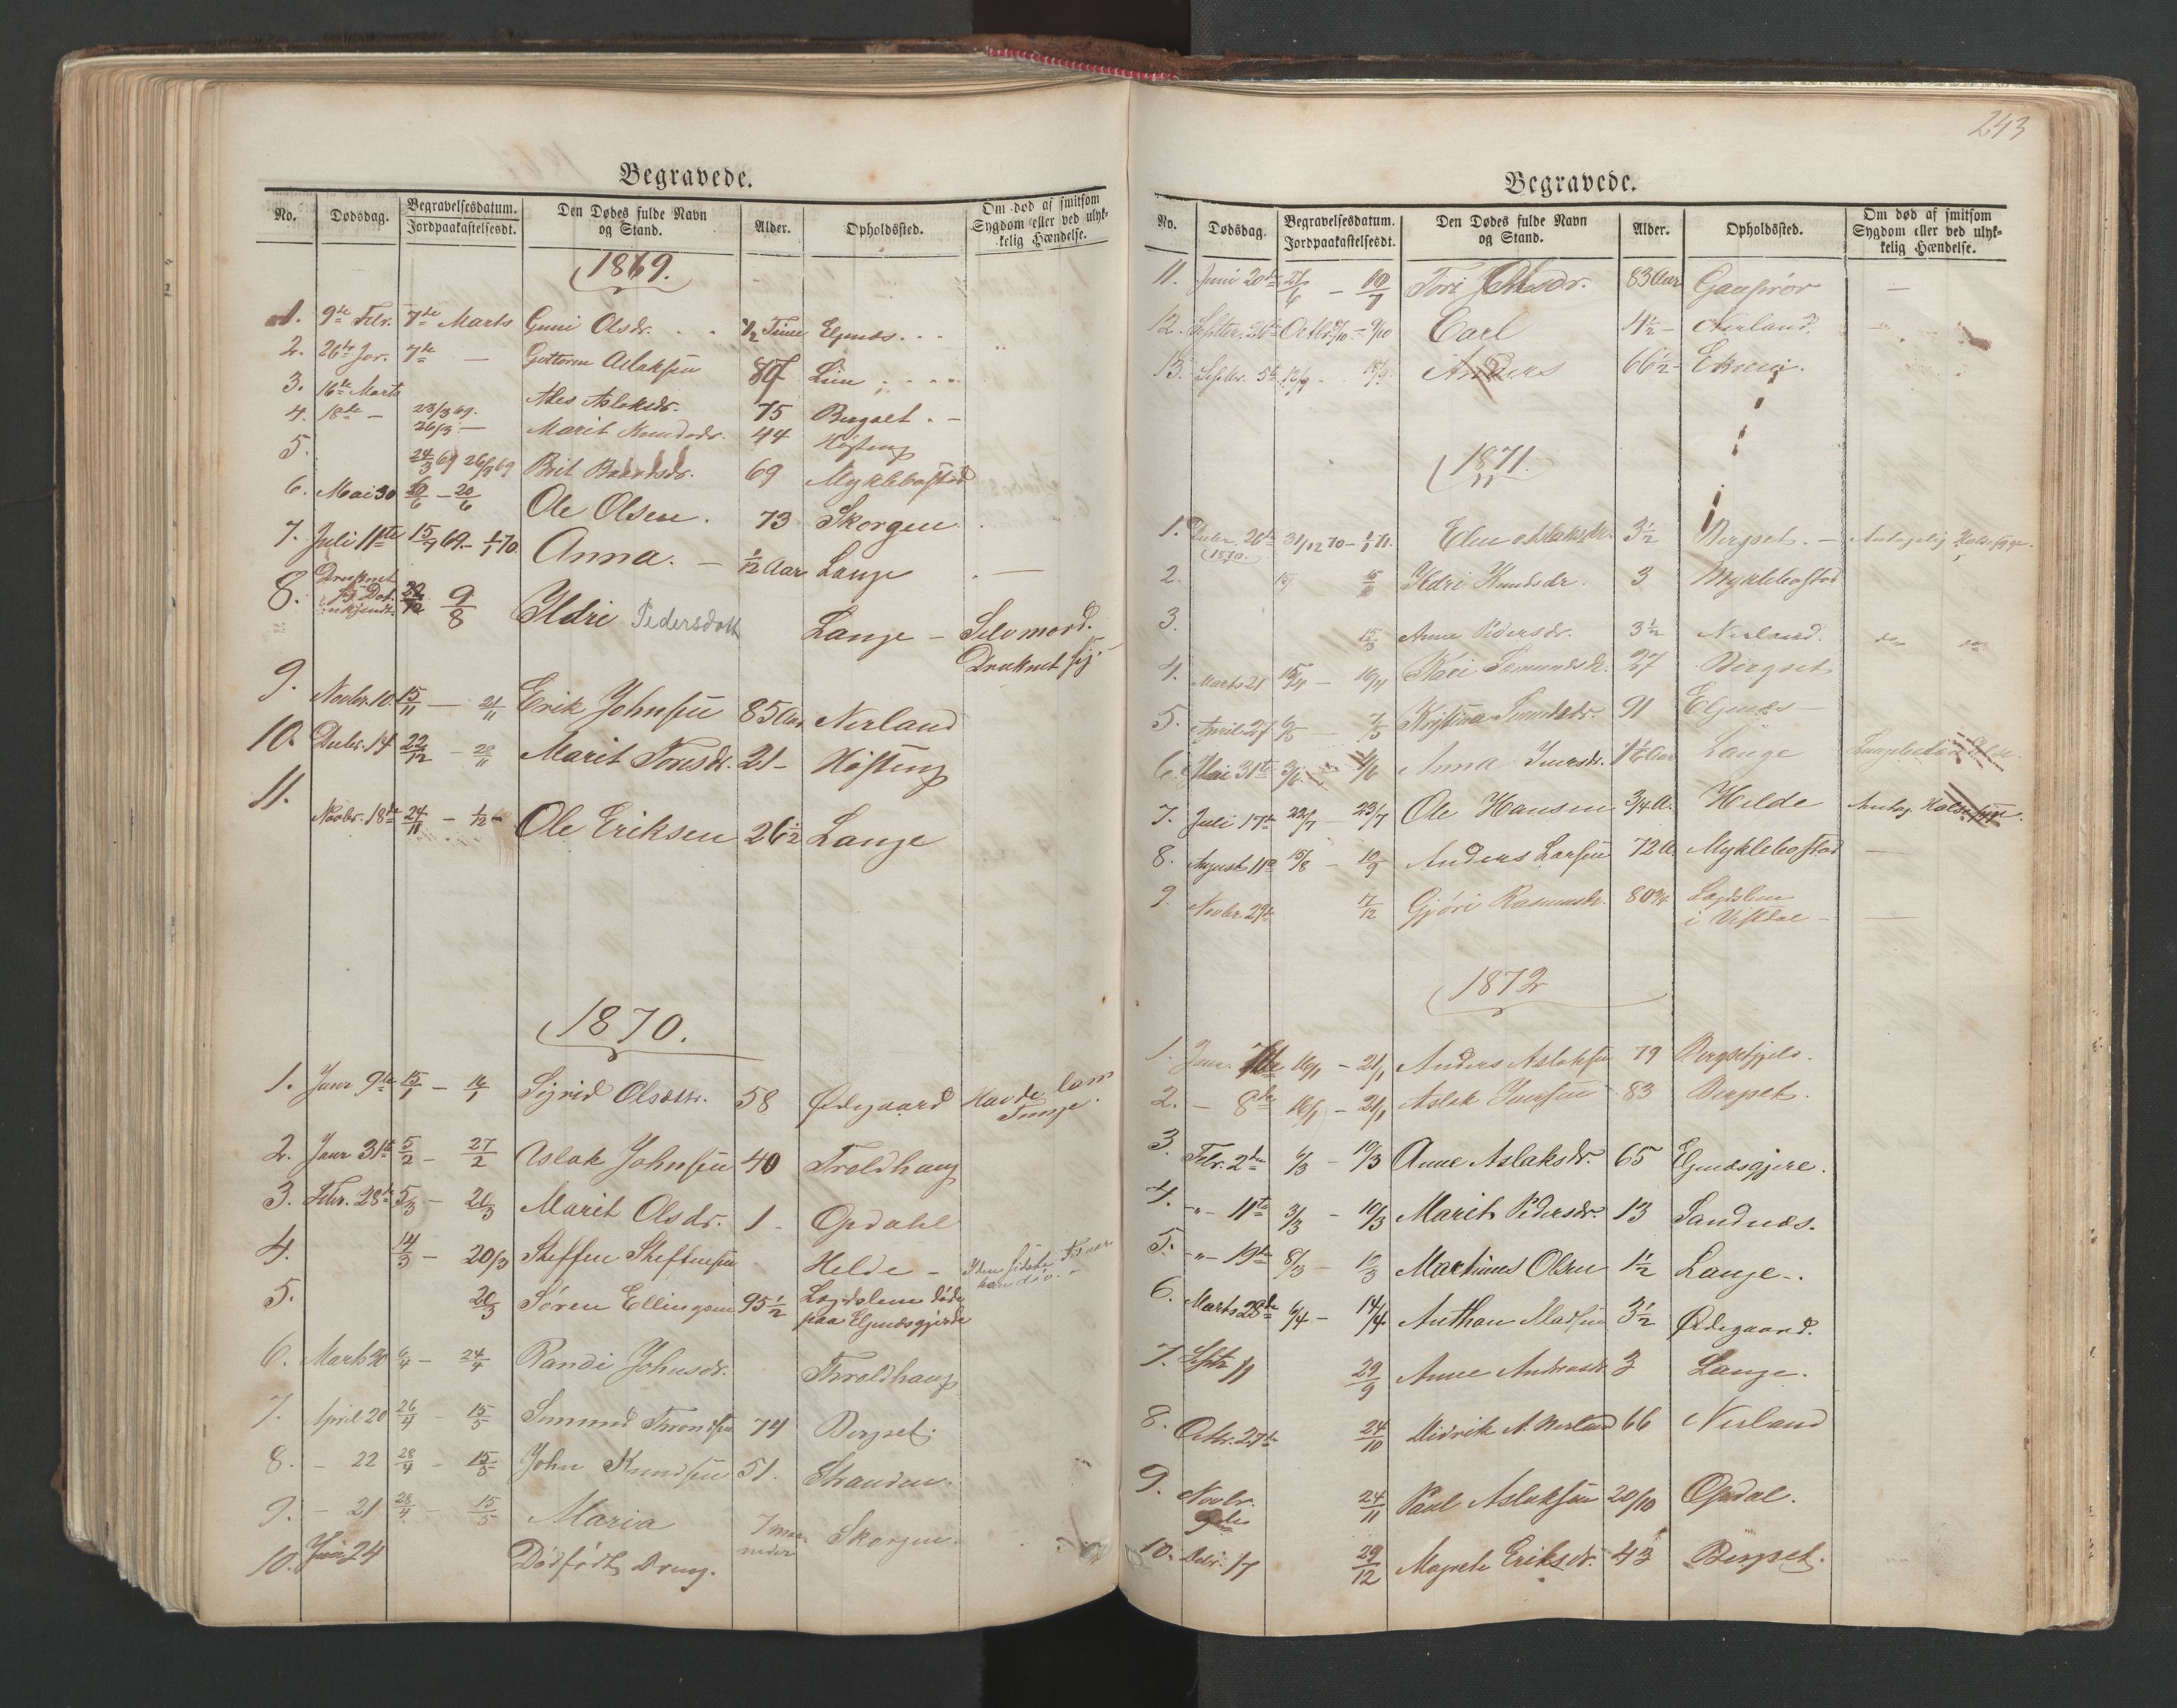 Begravede.
No. Dødsdag. Begravelsesdatum. Jordpaakastelsesdt. Den Dødes fulde Navn og Stand. Alder. Opholdssted. Om død af smitsom Sygdom eller ved ulykkelig Hændelse.
1869.
1. 9de Febr. 7de Marts Guni Olsdr. ½ Time Elgnæs
2. 26de Jan. 7de — Guttorm Aslaksen 87 Lien
3. 16de Marts Ales Aslaksdr. 75 Bergset
4. 18de — 23/3 69. 26/3 — Marit Knudsdr. 44 Høsteng
5. 24/3 69 26/3 69 Brit Baardsdr. 69 Myklebostad
6. Mai 30 — 20/6 Ole Olsen. 73 Skorgen
7. Juli 11te 15/7 69 – 1/1 70 Anna. — 1/12 Aar Lange —
8. Druknet Dat. 9/8 Ildri Pedersdatt Lange — Selvmord. Druknet sig.
9. Novbr. 10. 15/11 — 21/11 Erik Johnsen 85 Aar Nerland
10. Decbr. 14 22/12 — Marit Toresdr. 21 – Høsteng
11. Novbr. 18de 24/11 – 1/12 Ole Eriksen 26½ Lange
1870.
1. Janr 9de 15/1 — 16/1 Sigrid Olsdttr. 58 Ødegaard Havde lam Tunge.
2. Janr 31te 5/2 – 27/2 Aslak Johnsen 40 Troldhaug
3. Febr. 28de 5/3 – 20/3 Marit Olsdr. 1 – Opdahl
4. 14/3 – 20/3 Steffen Steffensen Helde –
5. 20/3 Søren Ellingsen 95½ Lagdslem døde paa Elgnæsgjerde
6. Marts 30 6/4 – 24/4 Randi Johnsdr. Throldhaug
7. April 20 26/4 – 15/5 Semund Throndsen 74 Bergset
8. – 22 28/4 – 15/5 John Knudsen 51. Stranden.
9. – 21 28/4 – 15/5 Maria 7 maaneder Skorgen
10. Juni 24 Dødfødt Dreng.
243
Begravede.
No. Dødsdag. Begravelsesdatum. Jordpaakastelsesdt. Den Dødes fulde Navn og Stand. Alder. Opholdssted. Om død af smitsom Sygdom eller ved ulykkelig Hændelse.
11. Juni 20de – 10/7 Tori 83 Aar Gausrør —
12. Septbr. 26de Octbr. – 9/10 Carl 4½ – Nerland. —
13. Septbr. 5te Anders 66½ – Ekrem.
1871.
1. Decbr. 28de (1870.) 31/12 70 – 1/1 71. Elen Aslaksdr. 3½ Bergset. – Antagelig Halssyge.
2. Ildri Knudsdr. 3 Myklebostad
3. 15/3 Anne Pedersdr. 3½ Nerland.
4. Marts 21 – 10/4 Kari Semundsdr. 27 Bergset
5. April 27 – 7/5 Kristina 91 Elgnæs –
6. Mai 31te 3/6 – 4/6 Anna Iversdr. Lange
7. Juli 17de 22/7 – 23/7 Ole Hansen 3/4 A. Helde Antag. Halssyge.
8. August 11te 15/8 – 10/9 Anders Larsen 72 A. Myklebostad —
9. Novbr. 29de 17/12 Gjøri Rasmusdr. 80¾ Lagdslem i Vistdal – —
1872
1. Janr. – 21/1 Anders Aslaksen 79 Bergsetgjelv.
2. — 8de 16/1 – 21/1 Aslak Iversen 83 Bergset.
3. Febr. 2den – 10/3 Anne Aslaksdr. 65 Elgnæsgjere.
4. –"– 11te 3/3 – 10/3 Marit Pedersdr. 13 Sandnæs.
5. –"– 19de 8/3 – 10/3 Martinus Olsen 1½ Lange –.
6. Marts 28de 6/4 – 14/4 Anthon Madsen 3½ Ødegaard.
7. Septbr 11 29/9 Anne Andreasdr. 3 Lange.
8. Octbr. 24/10 Didrik A. Nerland 66 Nerland
9. Novbr. 24/11 Paul Aslaksen 20/10 Opdal.
10. Decbr. 17 29/12 Magrete Eriksdr. 43 Bergset.